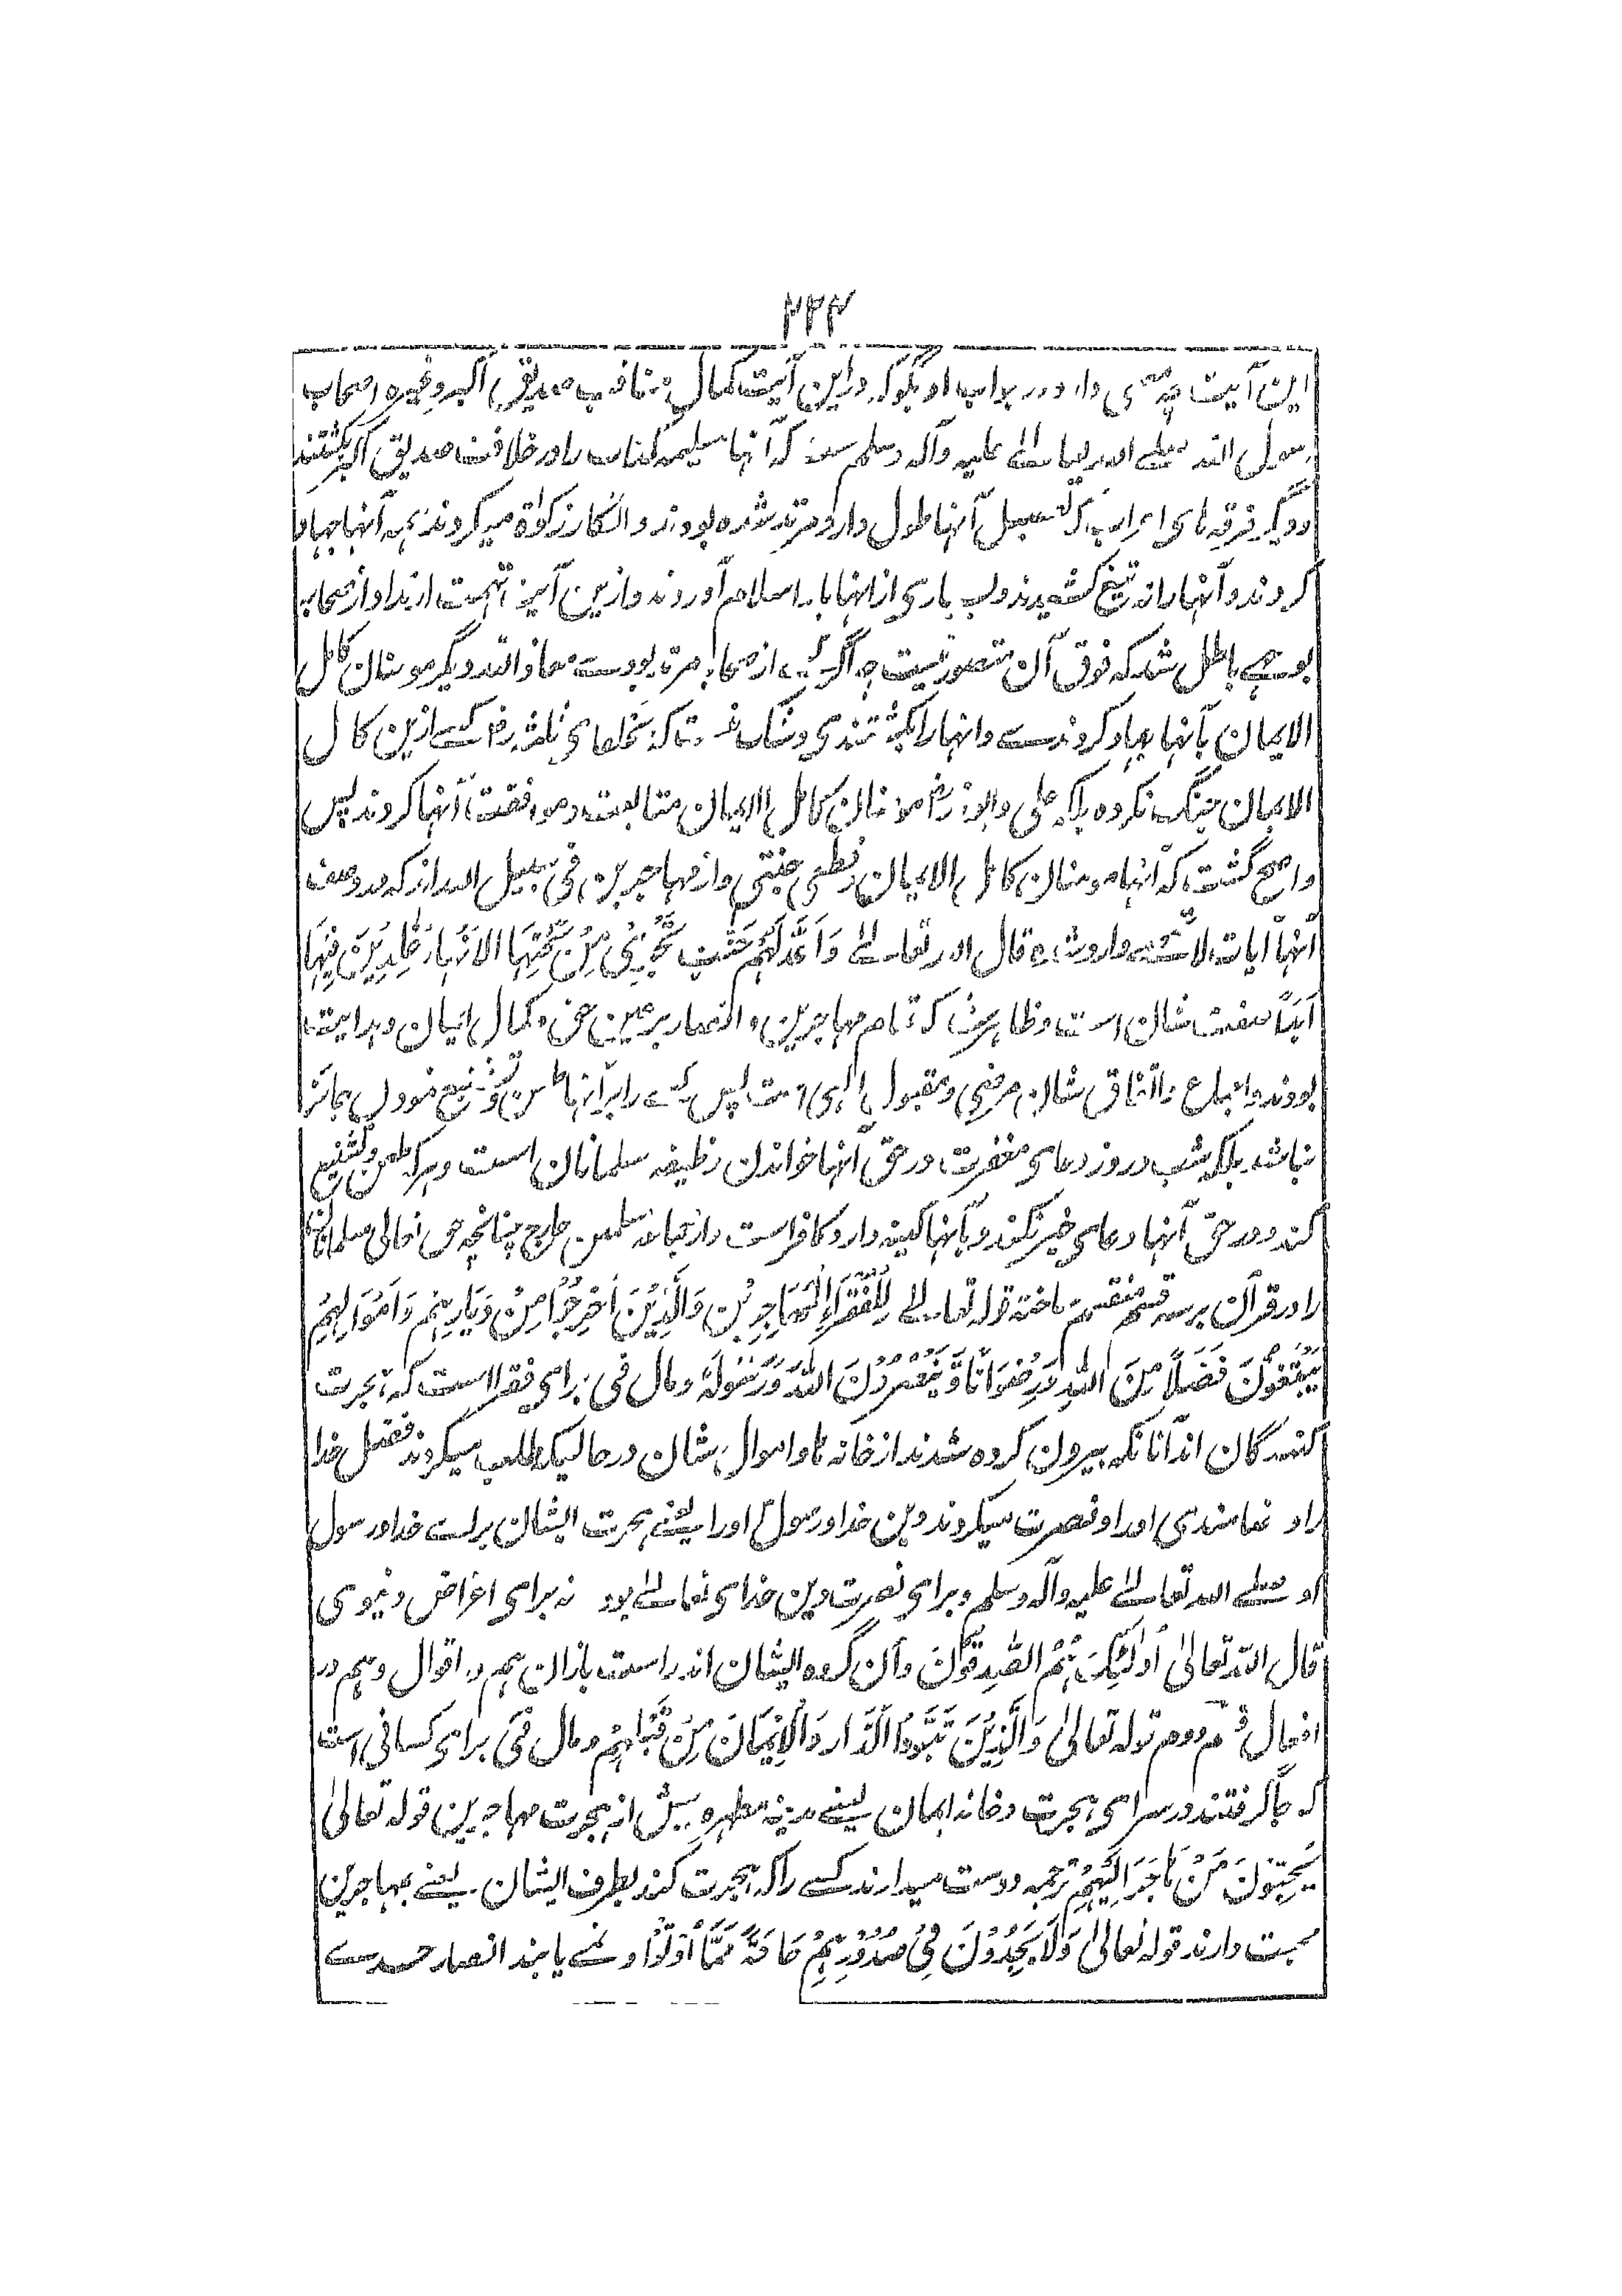 ۲۳۴
این آیت چه می دارد در جواب او بگو که در این آیت کمال مناقب صدیق اکبر وغیره اصحاب
رسول الله صلے الله تعالے علیه وآله وسلم ست که آنها مسیلمه کذاب را در خلافت صدیق اکبر کشتند
ودیگر فرقه های اعراب که تفصیل آنها طول دارد مرتد شده بودند وانکار زکوٰة میکردند همه آنها جهاد
کردند وآنها را نه تیغ کشیدند وبسیاری از انها باسلام آوردند وازین آیه تهمت ارتداد از صحابه
بوجهے باطل شد که فوق آن متصور نیست چه اگر کسے از صحابه مرتد بودے معاذ الله دیگر مومنان کامل
الایمان بآنها جهاد کردندے وانها را بکشتندی وتاکه بخلفای ثلثه رض کسے ازین کامل
الایمان جنگ نکرده بلکه علی وابوذر رض مومنان کامل الایمان متابعت وموافقت آنها کردند پس
واضح گشت که آنها مومنان کامل الایمان قطعی جنتی واز مهاجرین فی سبیل الله اند که در وصف
آنها آیات وارد شده قال الله تعالے وَاَعَدَّ لَهُمْ جَنّٰتٍ تَجْرِیْ مِنْ تَحْتِهَا الْاَنْهَارُ خٰلِدِیْنَ فِیْهَا
اَبَدًا صفت شان است وظاهرست که تمام مهاجرین وانصار بر عین حق وکمال ایمان وهدایت
بودند واجماع واتفاق شان مرضی ومقبول الٰهی است پس کسے را بر آنها طعن وتشنیع نمودن جائز
نباشد بلکه شب وروز دعای مغفرت در حق آنها خواندن وظیفه مسلمانان است وهر که طعن وتشنیع
کند ودر حق آنها دعای خیر نکند وبآنها کینه دارد کافر است واز جماعه مسلمین خارج چنانچه حق تعالی مسلمانان
را در قرآن بر سه قسم منقسم ساخته قوله تعالے لِلْفُقَرَاءِ الْمُهَاجِرِیْنَ وَالَّذِیْنَ اُخْرِجُوْا مِنْ دِیَارِهِمْ وَاَمْوَالِهِمْ
یَبْتَغُوْنَ فَضْلًا مِّنَ اللهِ وَرِضْوَانًا وَّیَنْصُرُوْنَ اللهَ وَرَسُوْلَهٗ ومال فی برای فقرا است که هجرت
کنندگان اند آنانکه بیرون کرده شدند از خانه ها واموال شان در حالیکه طلب میکردند فضل خدا
را ورضامندی او را ونصرت میکردند دین خدا ورسول او را یعنے هجرت ایشان براے خدا ورسول
او صلے الله تعالے علیه وآله وسلم وبرای نصرت دین خدای تعالے بود نه برای اغراض دنیوی
قال الله تعالیٰ اُولٰٓئِکَ هُمُ الصّٰدِقُوْنَ وآن گروه ایشان اند راست بازان هم در اقوال وهم در
افعال قسم دوم قوله تعالیٰ وَالَّذِیْنَ تَبَوَّءُوا الدَّارَ وَالْاِیْمَانَ مِنْ قَبْلِهِمْ ومال فی برای کسانی است
که جا گرفتند در سرای هجرت وخانه ایمان یعنے مدینه مطهره پیش از هجرت مهاجرین قوله تعالیٰ
یُحِبُّوْنَ مَنْ هَاجَرَ اِلَیْهِمْ ترجمه دوست میدارند کسے را که هجرت کند بطرف ایشان یعنے بمهاجرین
محبت دارند قوله تعالیٰ وَلَا یَجِدُوْنَ فِیْ صُدُوْرِهِمْ حَاجَةً مِّمَّا اُوْتُوْا ونمے یابند انصار حسدے